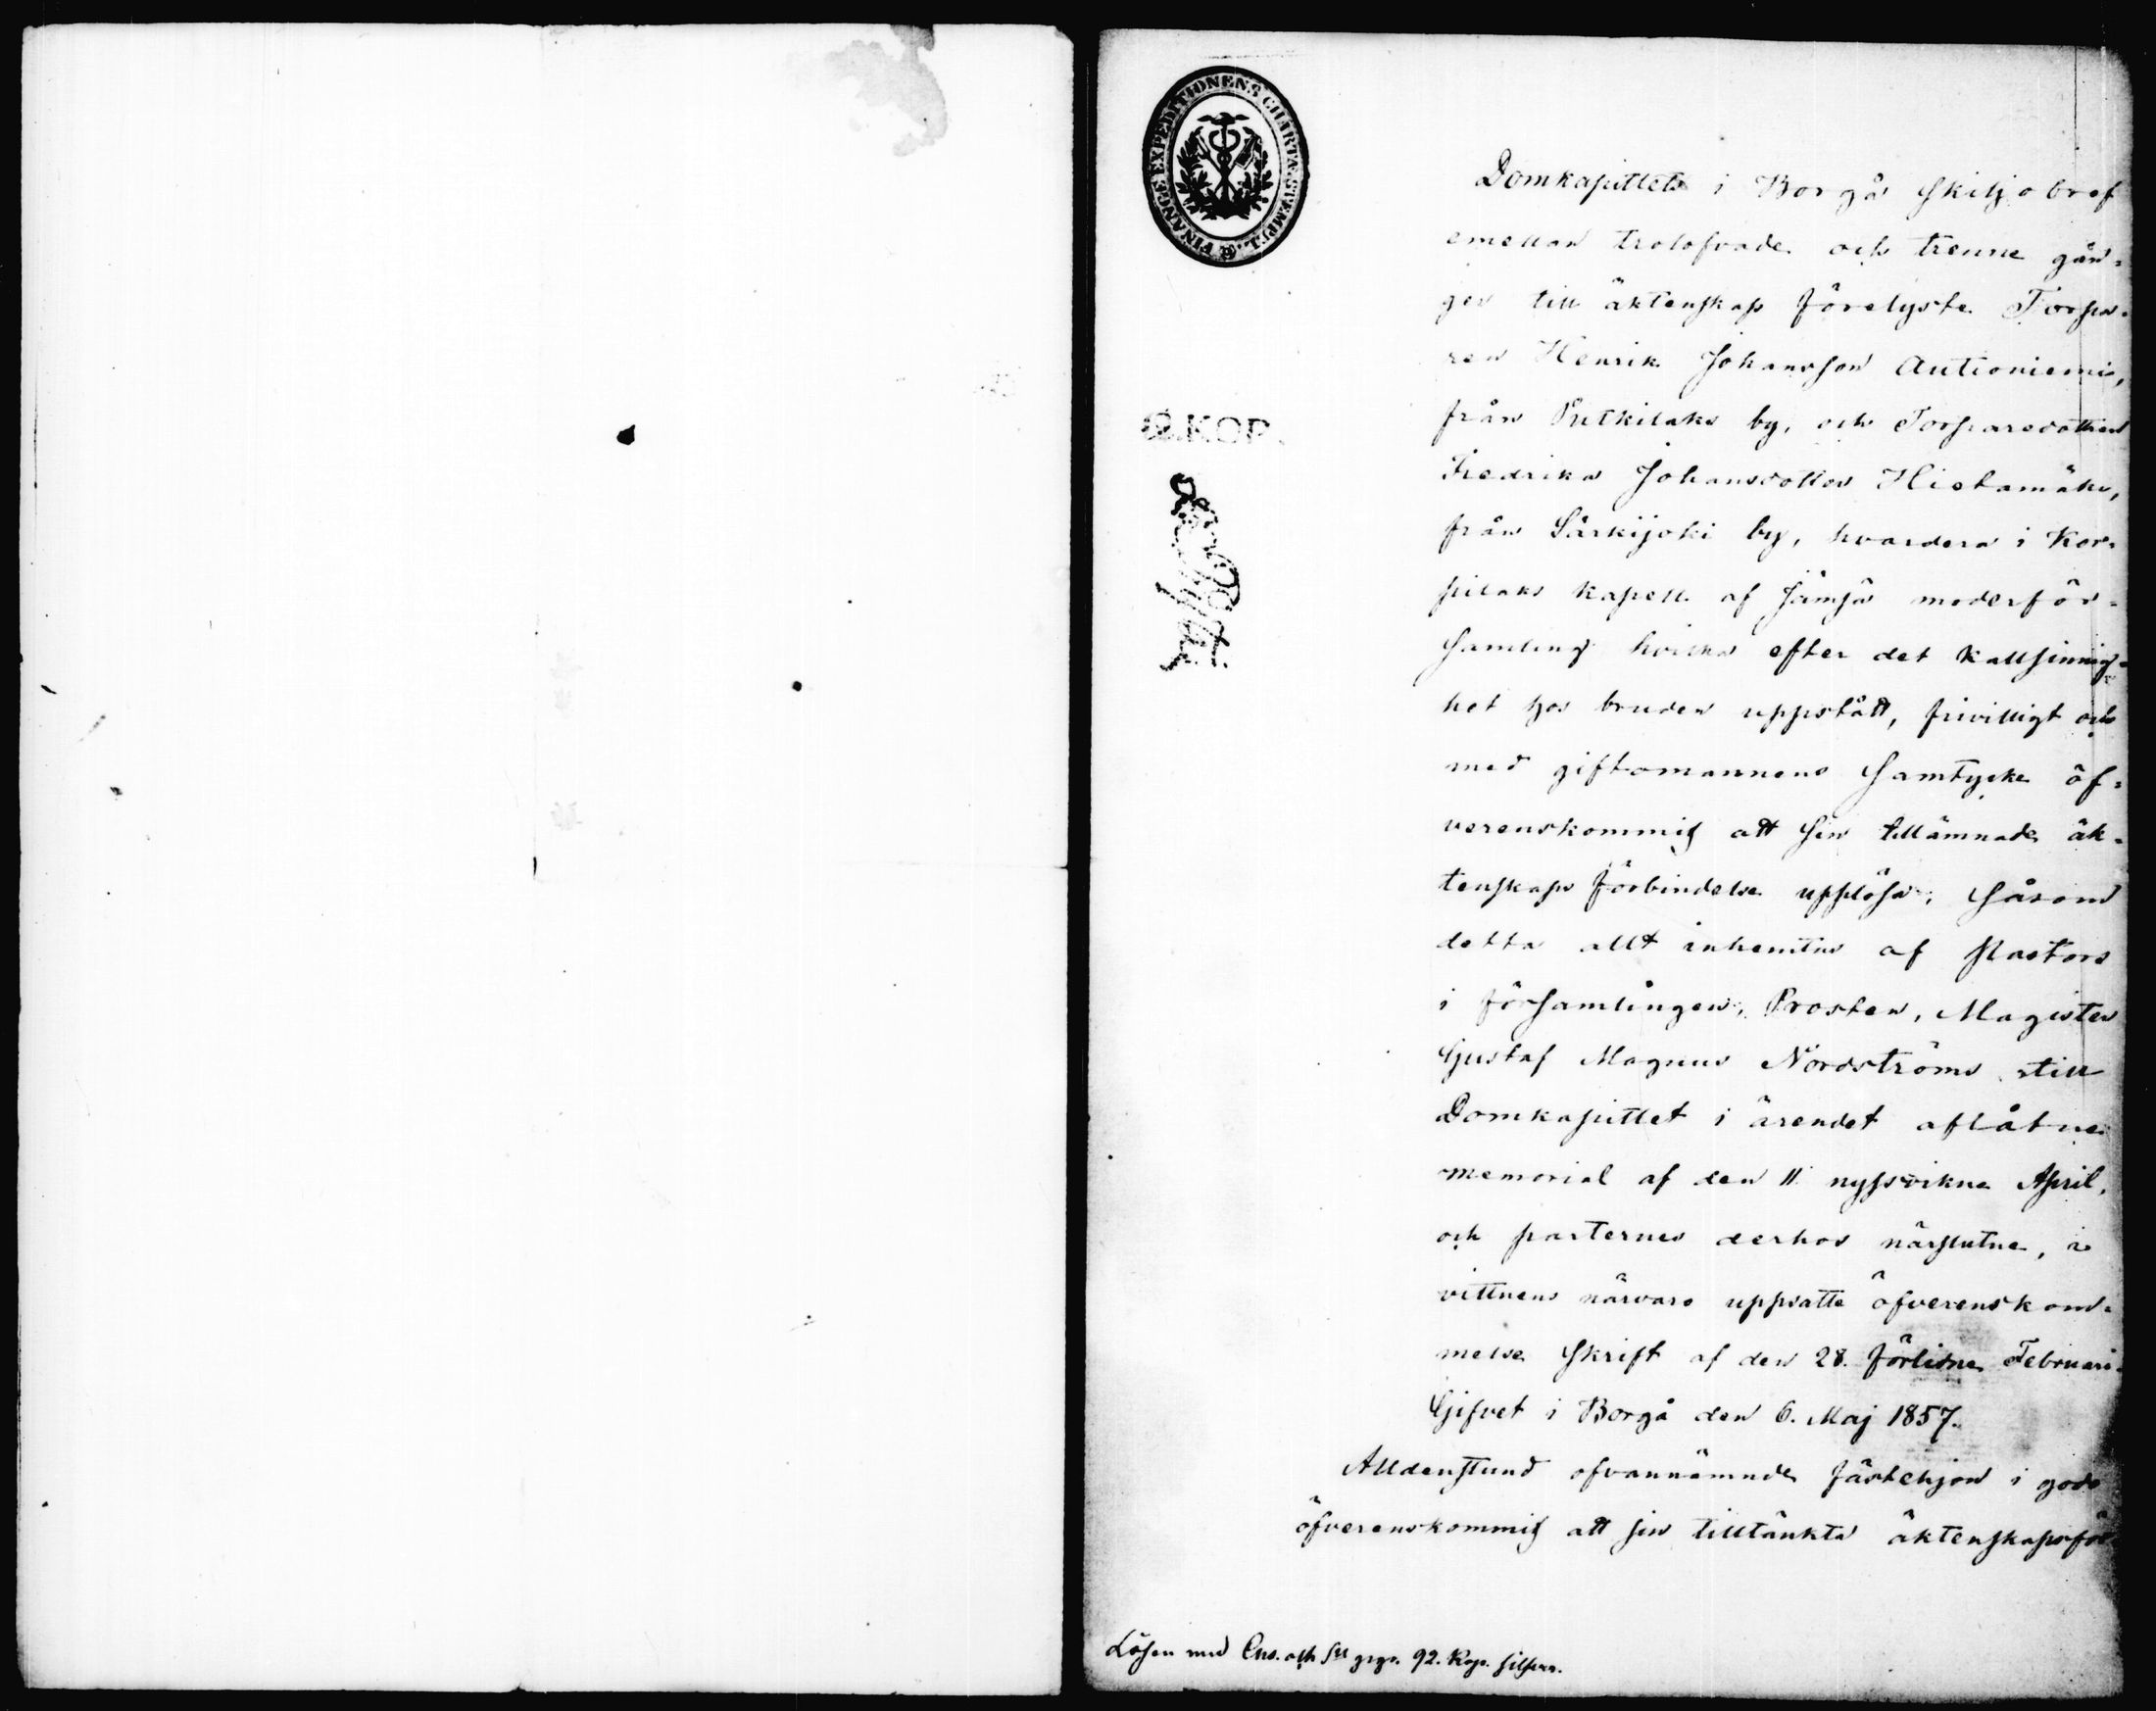 FINANCE EXPEDITIONENS CHARTÆ STEMPEL
KOP.
Domkapitlets i Borgå Skiljobref
emellan trolofvade och trenne gån-
ger till äktenskap förelyste Torpa-
ren Henrik Johansson Autioniemi,
från Putkilaks by, och Torparedottren
Fredrika Johansdotter Hietamäki,
från Särkijoki by, hvardera i Kor-
pilaks kapell af Jämsä moderför-
samling hvilka efter det kallsinnig-
het hos bruden uppstått, frivilligt och
med giftomannens samtycke öf-
verenskommit att sin tillämnade äk-
tenskaps förbindelse upplösa; såsom
detta allt inhemtas af Pastors
i församlingen, Prosten, Magister
Gustaf Magnus Nordströms till
Domkapitlet i ärendet aflåtne
memorial af den 11 nyssvikne April,
och parternes derhos närslutne, i
vittnens närvaro uppsatte öfverenskom-
melse skrift af den 28. förlidne Februari.
Gifvet i Borgå den 6. Maj 1857.
Alldenstund ofvannämnde fästehjon i godo
öfverenskommit att sin tilltänkta äktenskapsför
Lösen med Ens. och 92. Kop. silfver.